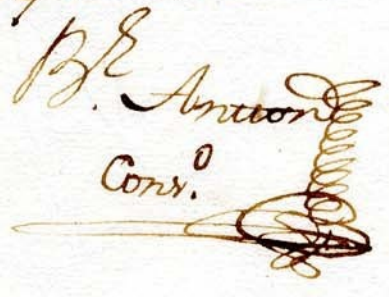 B.r Antton
Conr.o